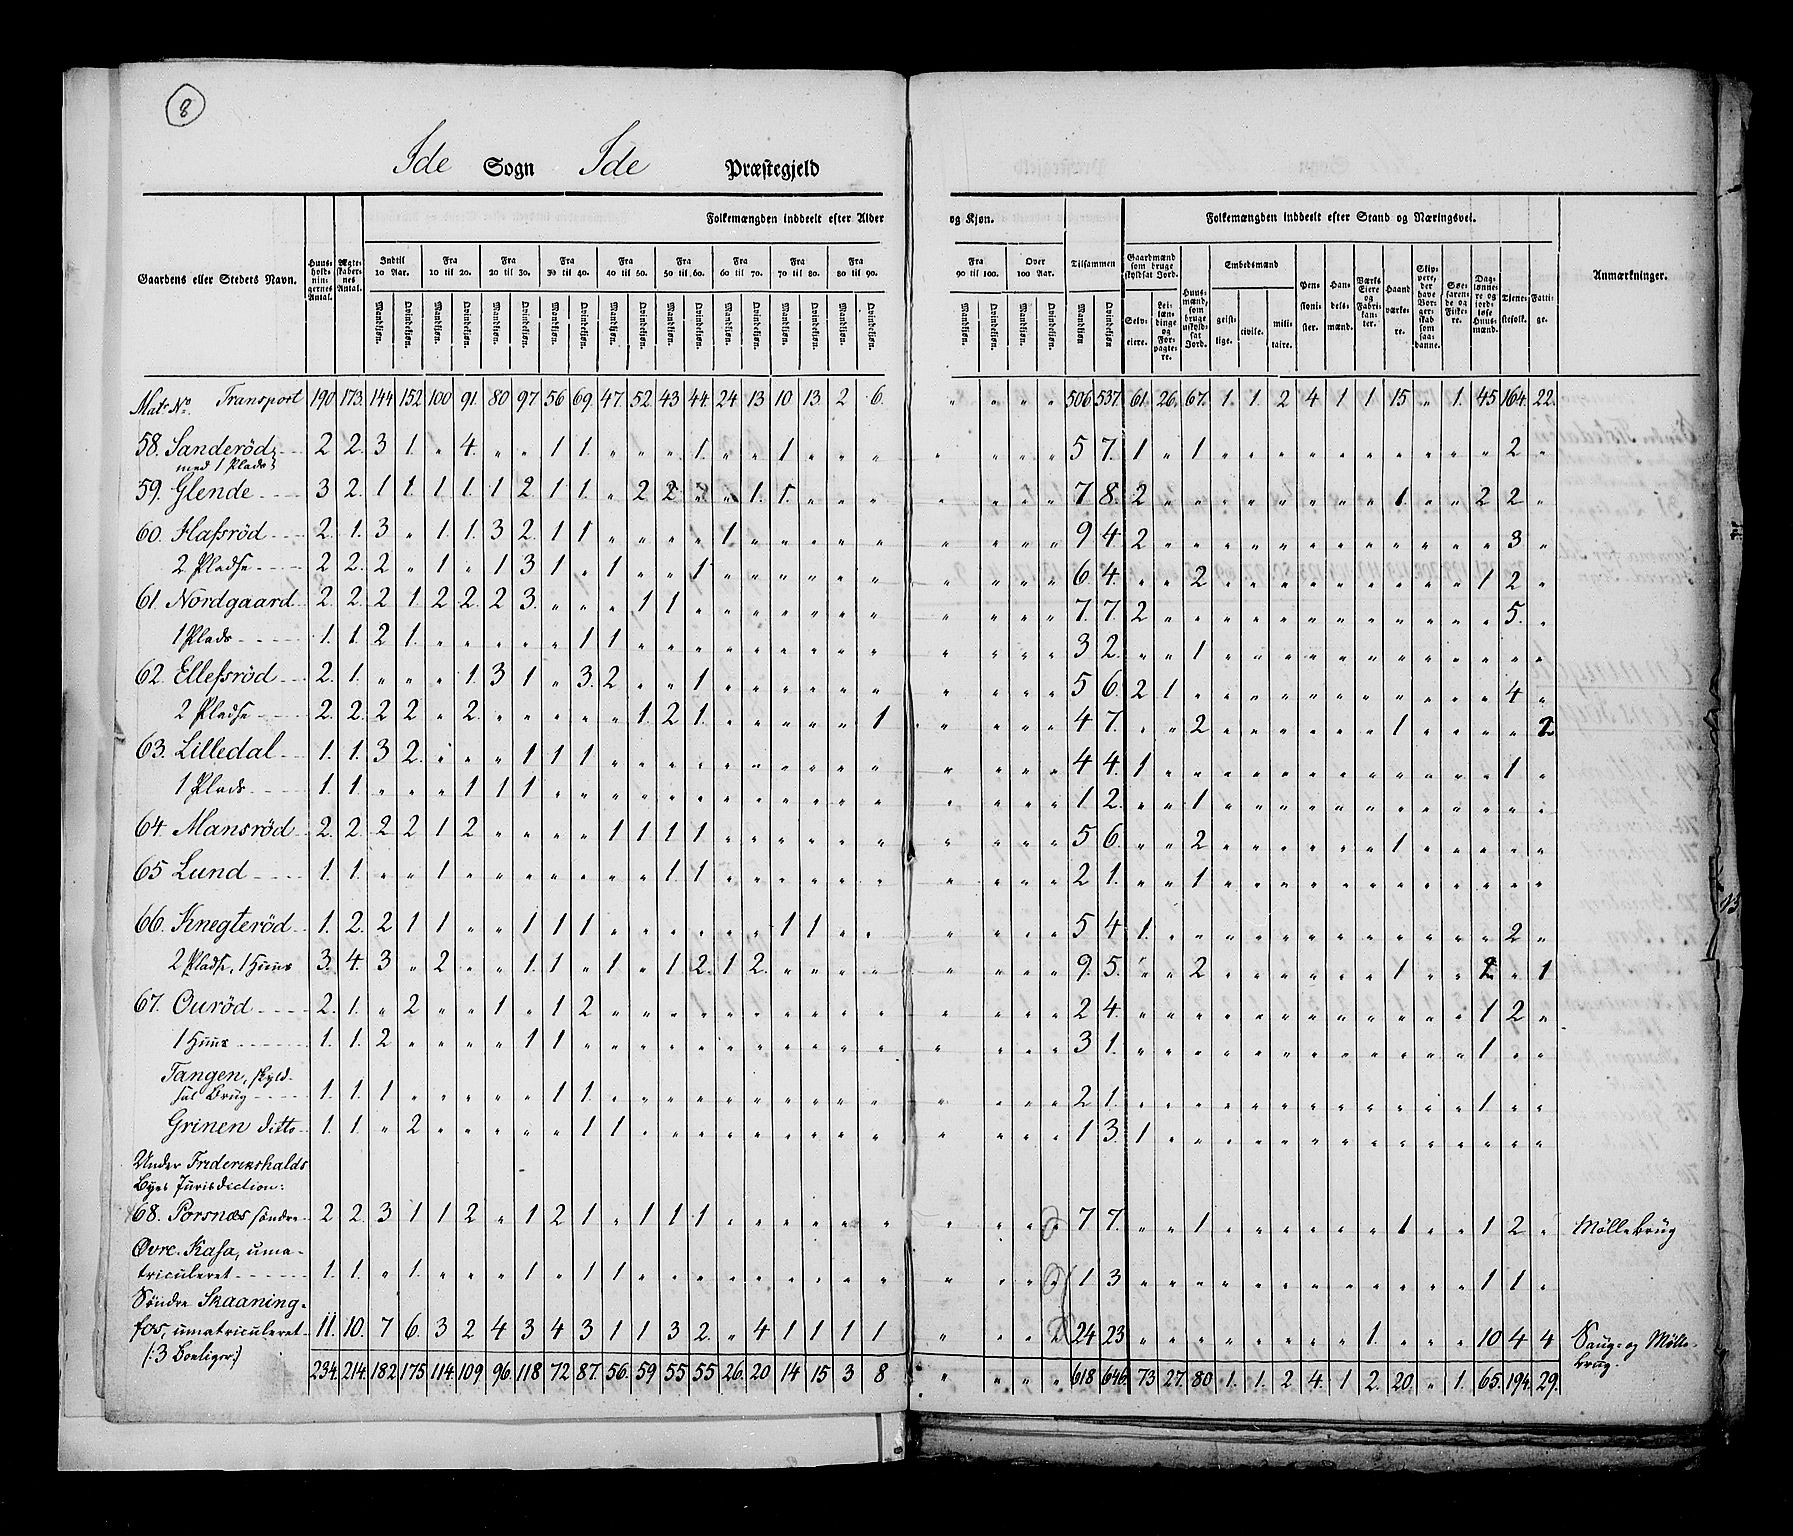 8
Ide Sogn Ide Præstegjeld
Folkemængden inddeelt efter Alder og Kjøn. Folkemængden inddeelt efter Stand og Næringsvei.
Gaardens eller Steders Navn. Huus-holdnin-gernes Antal. Ægte-skabernes Antal. Indtil 10 Aar. Fra 10 til 20. Fra 20 til 30. Fra 30 til 40. Fra 40 til 50. Fra 50 til 60. Fra 60 til 70. Fra 70 til 80. Fra 80 til 90. Fra 90 til 100. Over 100 Aar. Tilsammen Gaardmænd som bruge skyldsat Jord. Huus-mænd, som bruge uskyld-sat Jord. Embedsmænd Pen-sioni-ster. Han-dels-mænd. Værks-Eiere og Fabri-kan-ter. Haand-værke-re. Skip-pere, der have Bor-ger-skab som saa-danne. Søe-faren-de og Fiske-re. Dag-lønne-re og jord-løse Huus-mænd. Tjene-stefolk. Fatti-ge. Anmærkninger.
Mandkjøn. Qvindekjøn. Mandkjøn. Qvindekjøn. Mandkjøn. Qvindekjøn. Mandkjøn. Qvindekjøn. Mandkjøn. Qvindekjøn. Mandkjøn. Qvindekjøn. Mandkjøn. Qvindekjøn. Mandkjøn. Qvindekjøn. Mandkjøn. Qvindekjøn. Mandkjøn. Qvindekjøn. Mandkjøn. Qvindekjøn. Mandkjøn Qvindekjøn. Selv-eiere. Lei-læn-dinge og For-pagte-re. geist-lige. civile. mili-taire.
Matr No. Transport 190 173. 144 152 100 91. 80 97. 56 69. 47. 52. 43 44. 24 13. 10. 13. 2 6. " " " " 506 537. 61. 26. 67. 1. 1. 2 4 1 1. 15 " 1. 45 164. 22.
58. Sanderöd 2 2. 3 1. " 4. " " 1 1. " " " 1. " " 1. " " " " " " " 5 7. 1 " 1 " " " " " " " " " " 2 "
med 1 Plads
59. Glende 3 2. 1 1. 1 1. 1 2. 1 1. " 2 2 " " 1. 1. " " " " " " " 7 8. 2 " " " " " " " " 1. " " 2 2 "
60. Hafsröd 2 1. 3 " 1 1. 3 2. 1 1. " " " " 1 " " " " " " " " " 9 4. 2 " " " " " " " " " " " " 3 "
2 Pladse 2 2. 2 " 1 " 1 3 1 " 1 " " 1 " " " " " " " " " " 6 4. " " 2 " " " " " " " " " 1 2 "
61. Nordgaard 2. 2 2 1 2 2. 2 3. " " " 1 1. " " " " " " " " " " " 7. 7. 2 " " " " " " " " " " " " 5. "
1 Plads 1. 1. 2 1. " " " " " 1 1 " " " " " " " " " " " " " 3 2. " " 1 " " " " " " " " " " " "
62. Ellefsröd 2. 1. " " " 1. 3 1 " 3. 2 " " 1 " " " " " " " " " " 5 6. 2 1 " " " " " " " " " " " 4 "
2 Pladse 2. 2. 2 2 " 2. " " " " " 1. 2 1. " " " " " 1 " " " " 4 7. " " 2 " " " " " " 1 " " " " 2
63. Lilledal 1. 1. 3 2. " " " 1 1 1. " " " " " " " " " " " " " " 4 4. 1 " " " " " " " " " " " " 1 "
1 Plads 1. 1. " " " 1 1 1 " " " " " " " " " " " " " " " " 1 2. " " 1 " " " " " " " " " " " "
64. Mansröd 2. 2 2 2 1 2 " " " " 1 1 1 1 " " " " " " " " " " 5 6. " " 2 " " " " " " 1 " " " " "
65 Lund 1. 1. " " 1 " " " " " " " 1 1. " " " " " " " " " " 2 1. " " 1 " " " " " " " " " " " "
66. Knegteröd 1. 2. 2 1 1 " " 1 1 1. " " " " " " 1 1. " " " " " " 5 4 1. " " " " " " " " " " " " 2 "
2 Pladse, 1 Huus 3. 4. 3 " 2 " " 1. 1 " 1 " 1 2. 1 2. " " " " " " " " 9. 5. " " 2 " " " " " " 1 " " 2 " 1
67. Ouröd 2. 1. " 2 " " 1 " 1 2 " " " " " " " " " " " " " " 2 4. " " " " " " " " " " " " 1 2 "
1 Huus 1. 1. 2 " " " " 1 1. " " " " " " " " " " " " " " " 3 1. " " " " " " " " " " " " 1 " "
Tangen, skyld-
sat Brug 1. 1. 1 " " " " " 1 1. " " " " " " " " " " " " " " 2 1. " " " " " " " " " " " " 1 " "
Grinen ditto 1. 1. " 2 " " " " " 1 1. " " " " " " " " " " " " " 1 3. 1 " " " " " " " " " " " " " "
Under Frederikshalds
Byes Jurisdiction:
68. Porsnæs söndre 2 2. 3 1 1 2 " 1 2 1 " 1 1 1. " " " " " " " " " " 7 7. " " 1 " " " " " " 1 " " 1 2 " Möllebrug
Øvre-Kasa, uma-
triculeret 1. 1. " 1. " " " 1 " 1 1 " " " " " " " " " " " " " 1 3 " " " " " " " " " " " " 1 1. "
Söndre Skaaning-
fos, umatriculeret 11. 10. 7 6. 3 2 4 3 4 3 1 1 3 2. " 4 1 1 1 1 " " " 24 23 " " " " " " " " 1. " " " 10 4 4 Saug- og Mölle-
(: 3 Boeliger :) brug.
234. 214. 182 175 114. 109 96. 118 72 87. 56. 59 55 55 26. 20 14 15 3 8 " " " " 618 646. 73 27. 80 1. 1. 2 4. 1 2. 20. " 1. 65. 194. 29.